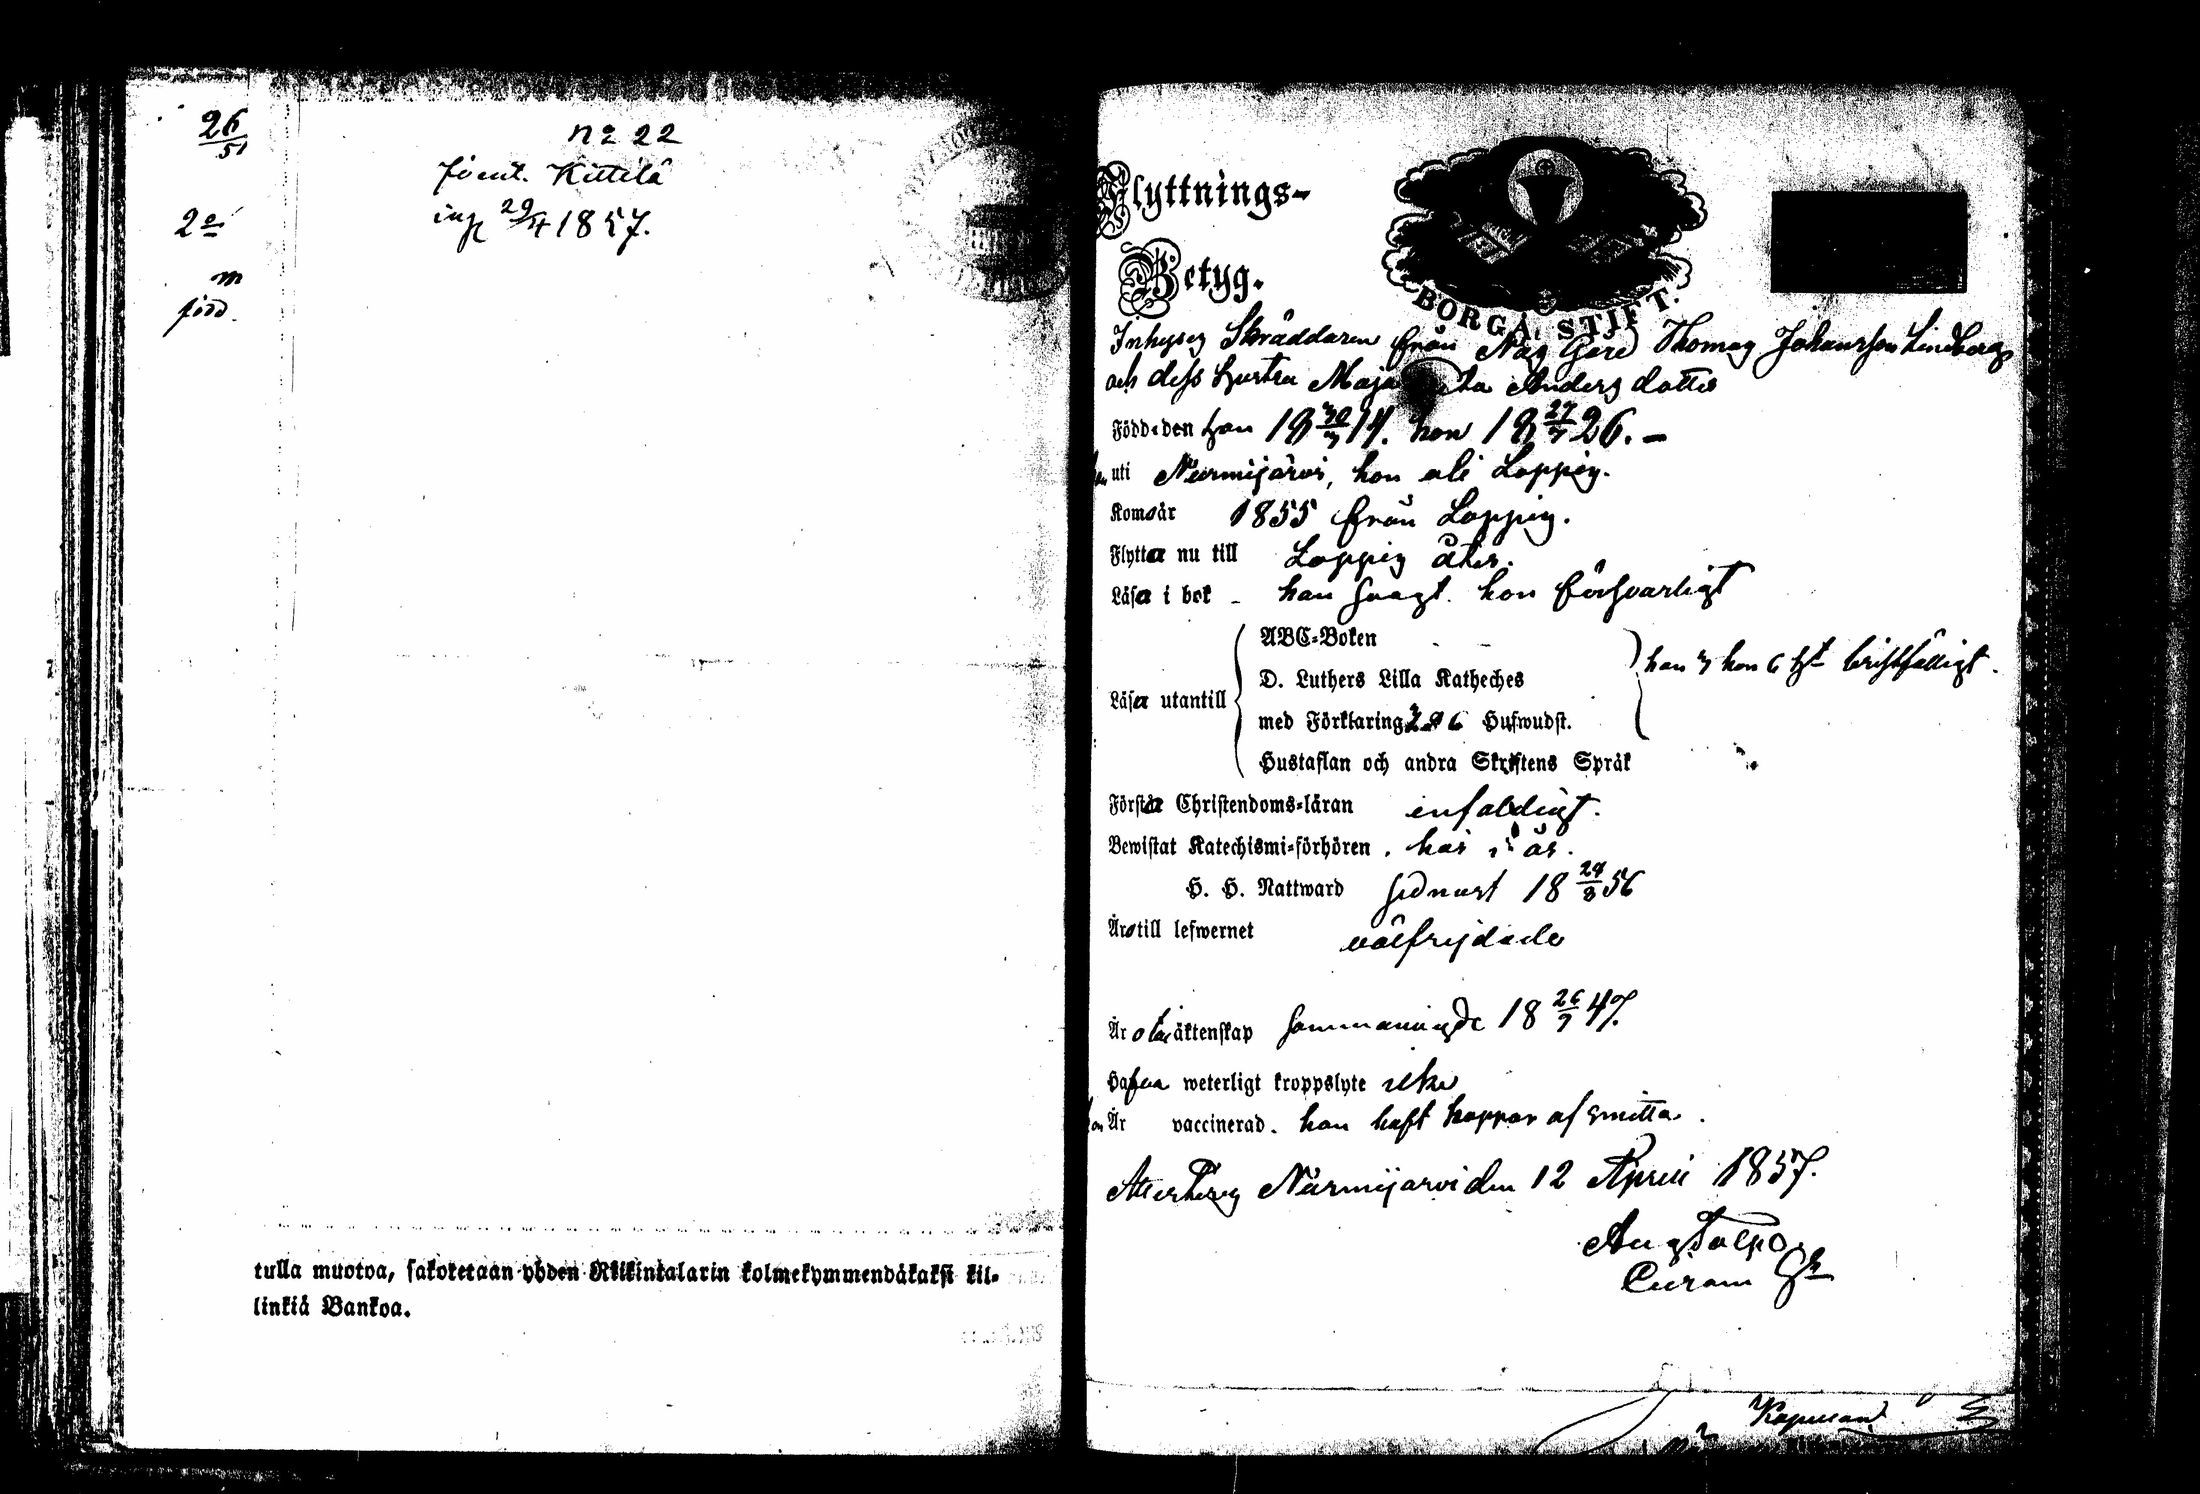 26/51
2
m
född.
No 22
Joent. Kittilä
ing 29/4 1857.
tulla muotoa, sakoketaan yhden Riikintalarin kolmekymmendäkaksi kil-
linkiä Bankoa.
Flyttnings-
Betyg.
BORGÅ STIFT.
Inhyses Skräddaren från Näs Gård Thomas Johansson Lindberg
och dess hustru Maja Andersdotter
Född den han 18 30/3 14. hon 18 27/7 26. -
uti Nurmijärvi, hon uti Loppis.
Kom år 1855 från Loppis.
Flytta nu till Loppis åter.
Läsa i bok - han svagt. hon försvarligt
ABC-Boken
D. Luthers Lilla Katheches
Läsa utantill
han 3 hon 6 hst bristfälligt.
med Förklaring 6 Hufwudst.
Hustaflan och andra Skriftens Språk
Förstå Christendoms-läran enfaldigt.
Bewistat Katechismi-förhören. här i år.
H. H. Nattward sednast 18 29/3 56
Äro till lefwernet välfrejdade
Äro i äktenskap sammanvigde 18 26/9 47.
Hafva weterligt kroppslyte icke
hon Är vaccinerad. han haft koppor af smitta.
Attesteras Nurmijärvi den 12 April 1857.
Aug
Kapellan